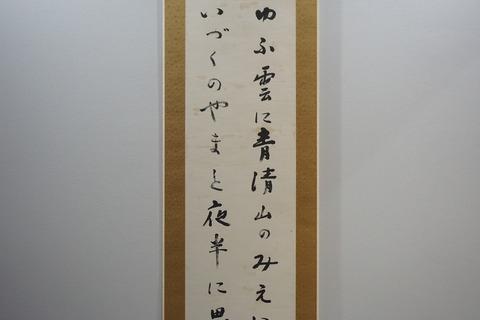 ゆふ雲に青清山のみえ
いづくのやまと夜半に